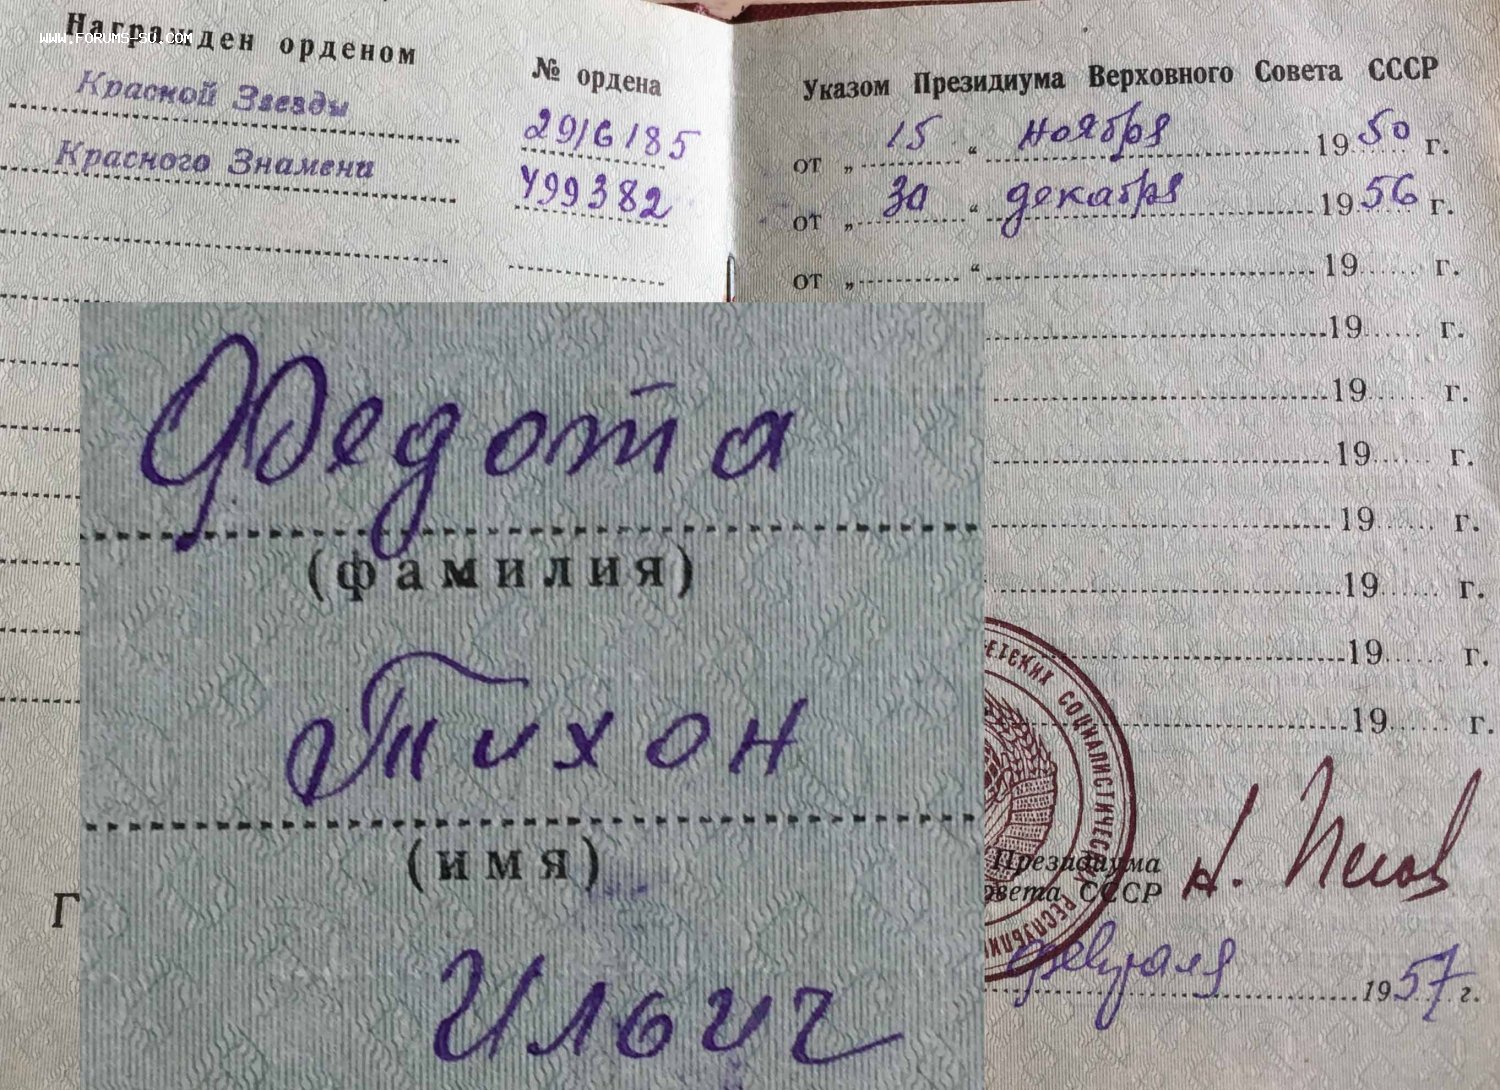 Награжден орденом
www.forums-su.com
№ ордена
Красной Звезды
2916185
Красного Знамени
499382
Указом Президиума Верховного Совета СССР
от „ 15 “ ноября 1950 г.
от „ 30 “ декабря 1956 г.
от „ “ 19 г.
19 г.
19 г.
19 г.
19 г.
19 г.
19 г.
19 г.
Федота
(фамилия)
Тихон
(имя)
Ильич
Г
ЕТСКИХ СОЦИАЛИСТИЧЕСКИХ РЕСПУБЛИК
Президиума
овета СССР
Н. Пегов
февраля 1957 г.